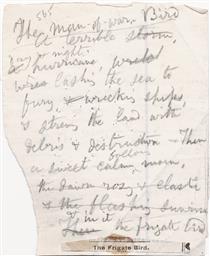 565
The man-of-war Bird
A terrible storm,
day & night,
a hurricane,
was lashing the sea to
fury & wrecking ships,
& strewing the land with
debris & destruction — Then
follow
a sweet calm morn,
the dawn rosy & elastic
& the flashing sunrise
& in it the frigate bird
The Frigate Bird.